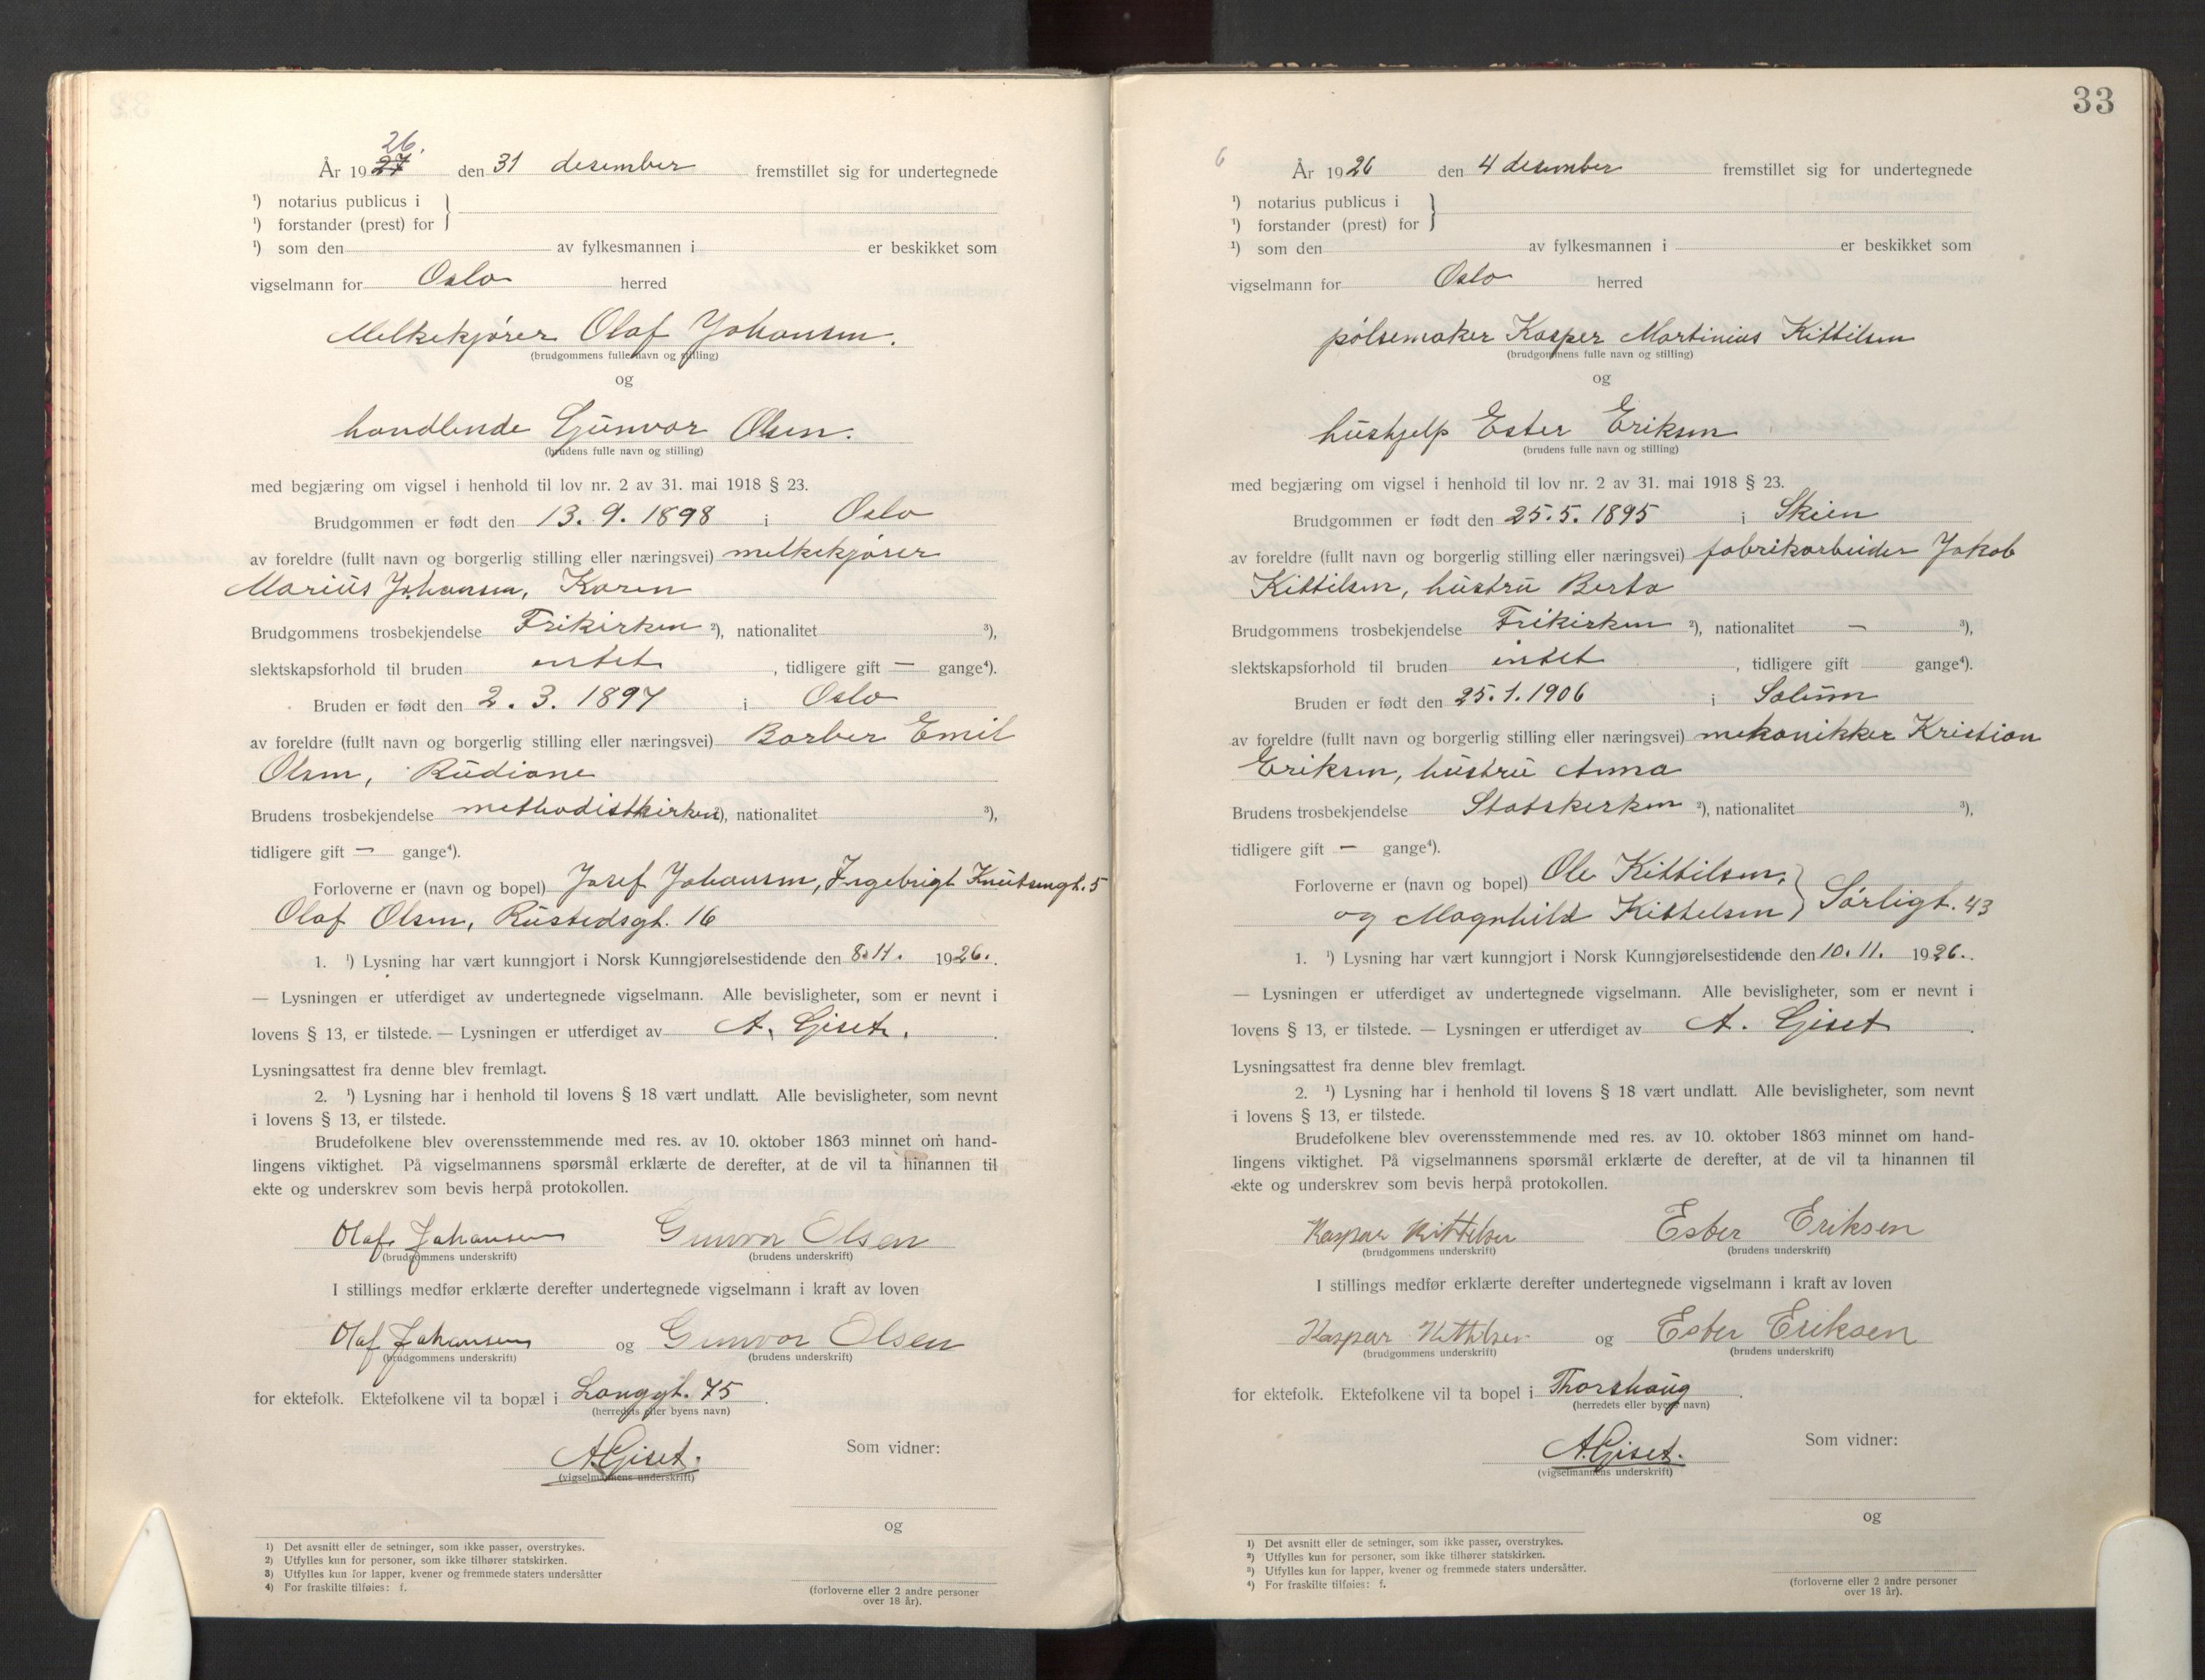 26.
År 1927 den 31 desember fremstillet sig for undertegnede
¹) notarius publicus i
¹) forstander (prest) for
¹) som den av fylkesmannen i er beskikket som
vigselmann for Oslo herred
Melkekjører Olaf Johansen.
(brudgommens fulle navn og stilling)
og
handlende Gunvor Olsen.
(brudens fulle navn og stilling)
med begjæring om vigsel i henhold til lov nr. 2 av 31. mai 1918 § 23.
Brudgommen er født den 13. 9. 1898 i Oslo
av foreldre (fullt navn og borgerlig stilling eller næringsvei) melkekjører
Marius Johansen, Karen
Brudgommens trosbekjendelse Frikirken ²), nationalitet ³),
slektskapsforhold til bruden intet, tidligere gift — gange⁴).
Bruden er født den 2. 3. 1897 i Oslo
av foreldre (fullt navn og borgerlig stilling eller næringsvei) Barber Emil
Olsen, Rudiane
Brudens trosbekjendelse methodistkirken ²), nationalitet ³),
tidligere gift — gange⁴).
Forloverne er (navn og bopel) Josef Johansen, Ingebrigt Knutsengt. 5
Olaf Olsen, Rustedsgt. 16
1. ¹) Lysning har vært kunngjort i Norsk Kunngjørelsestidende den 8. 11. 1926.
— Lysningen er utferdiget av undertegnede vigselmann. Alle bevisligheter, som er nevnt i
lovens § 13, er tilstede. — Lysningen er utferdiget av A. Giset.
Lysningsattest fra denne blev fremlagt.
2. ¹) Lysning har i henhold til lovens § 18 vært undlatt. Alle bevisligheter, som nevnt
i lovens § 13, er tilstede.
Brudefolkene blev overensstemmende med res. av 10. oktober 1863 minnet om hand-
lingens viktighet. På vigselmannens spørsmål erklærte de derefter, at de vil ta hinannen til
ekte og underskrev som bevis herpå protokollen.
Olaf Johansen Gunvor Olsen
(brudgommens underskrift) (brudens underskrift)
I stillings medfør erklærte derefter undertegnede vigselmann i kraft av loven
Olaf Johansen og Gunvor Olsen
(brudgommens underskrift) (brudens underskrift)
for ektefolk. Ektefolkene vil ta bopæl i Langgt. 75.
(herredets eller byens navn)
A. Giset.
(vigselmannens underskrift)
Som vidner:
og
(forloverne eller 2 andre personer
over 18 år).
1) Det avsnitt eller de setninger, som ikke passer, overstrykes.
2) Utfylles kun for personer, som ikke tilhører statskirken.
3) Utfylles kun for lapper, kvener og fremmede staters undersåtter
4) For fraskilte tilføies: f.
33
6
År 1926 den 4 desember fremstillet sig for undertegnede
¹) notarius publicus i
¹) forstander (prest) for
¹) som den av fylkesmannen i er beskikket som
vigselmann for Oslo herred
pølsemaker Kasper Martinius Kittilsen
(brudgommens fulle navn og stilling)
og
hushjelp Ester Eriksen
(brudens fulle navn og stilling)
med begjæring om vigsel i henhold til lov nr. 2 av 31. mai 1918 § 23.
Brudgommen er født den 25. 5. 1895 i Skien
av foreldre (fullt navn og borgerlig stilling eller næringsvei) fabrikarbeider Jakob
Kittilsen, hustru Berta
Brudgommens trosbekjendelse Frikirken ²), nationalitet — ³),
slektskapsforhold til bruden intet, tidligere gift gange⁴).
Bruden er født den 25. 1. 1906 i Solum
av foreldre (fullt navn og borgerlig stilling eller næringsvei) mekanikker Kristian
Eriksen, hustru Anna
Brudens trosbekjendelse Statskirken ²), nationalitet ³),
tidligere gift — gange⁴).
Forloverne er (navn og bopel) Ole Kittilsen,
og Magnhild Kittelsen } Sørligt. 43
1. ¹) Lysning har vært kunngjort i Norsk Kunngjørelsestidende den 10. 11. 1926.
— Lysningen er utferdiget av undertegnede vigselmann. Alle bevisligheter, som er nevnt i
lovens § 13, er tilstede. — Lysningen er utferdiget av A. Giset.
Lysningsattest fra denne blev fremlagt.
2. ¹) Lysning har i henhold til lovens § 18 vært undlatt. Alle bevisligheter, som nevnt
i lovens § 13, er tilstede.
Brudefolkene blev overensstemmende med res. av 10. oktober 1863 minnet om hand-
lingens viktighet. På vigselmannens spørsmål erklærte de derefter, at de vil ta hinannen til
ekte og underskrev som bevis herpå protokollen.
Kaspar Kittelsen Ester Eriksen
(brudgommens underskrift) (brudens underskrift)
I stillings medfør erklærte derefter undertegnede vigselmann i kraft av loven
Kaspar Kittelsen og Ester Eriksen
(brudgommens underskrift) (brudens underskrift)
for ektefolk. Ektefolkene vil ta bopel i Thorshaug.
(herredets eller byens navn)
A. Giset.
(vigselmannens underskrift)
Som vidner:
og
(forloverne eller 2 andre personer
over 18 år).
¹) Det avsnitt eller de setninger, som ikke passer, overstrykes.
²) Utfylles kun for personer, som ikke tilhører statskirken.
³) Utfylles kun for lapper, kvener og fremmede staters undersåtter.
⁴) For fraskilte tilføies: f.